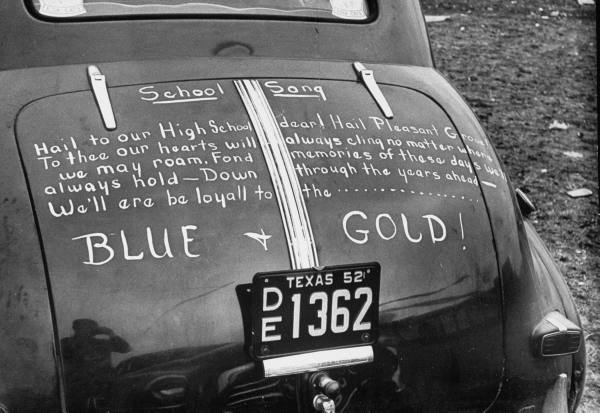 School Song
Hail to our High School dear! Hail Pleasant Grove
To thee our hearts will always cling no matter where
we may roam. Fond memories of these days we
always hold—Down through the years ahead—
We'll ere be loyall to the ....................
BLUE + GOLD!
TEXAS 52
DE 1362